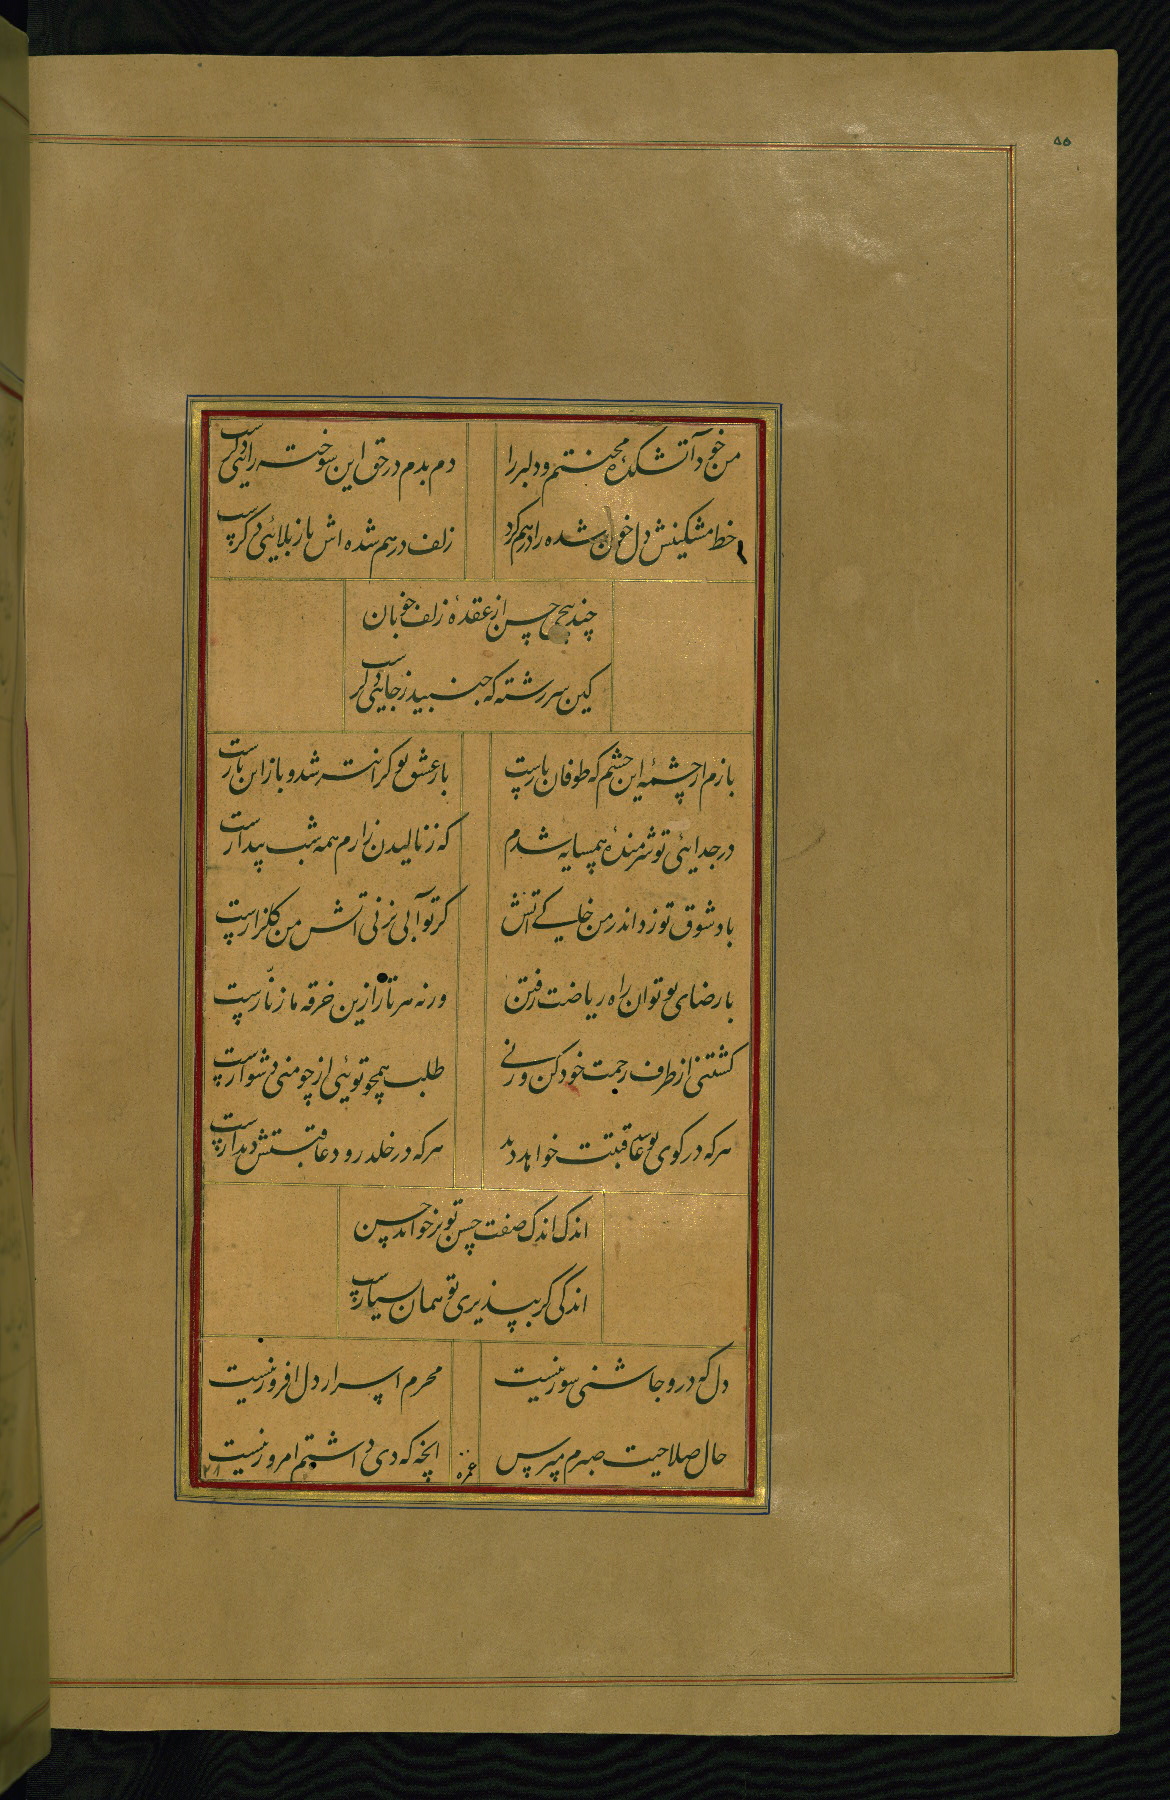 ۵۵
من خود آتشکدهٔ محنتم و دلبر را دم بدم در حق این سوخته رائی دگرست
خط مشکینش دل خون شده را درهم کرد زلف درهم شده اش باز بلائی دگرست
چند پیچی حسن از عقدهٔ زلف خوبان
کین سررشته که جنبید ز جائی دگرست
بازم از چشمهٔ این چشم که طوفان بارست بار عشق تو گرانتر شد و باز این بارست
در جدائی تو شرمندهٔ همسایه شدم که ز نالیدن زارم همه شب بیدارست
باد شوق تو زد اندر من خاکی آتش گر تو آبی نزنی آتش من گلزارست
با رضای تو توان راه ریاضت رفتن ورنه هر تار ازین خرقهٔ ما زنّارست
کشتنی از طرف رحمت خود کن ورنی طلب همچو توئی از چو منی دشوارست
هرکه در کوی تو عاقبتت خواهد دید هرکه در خلد رود عاقبتش دیدارست
اندک اندک صفت حسن تو برخواند حسن
اندکی گر بپذیری تو همان بسیارست
دل که درو چاشنی سوز نیست محرم اسرار دل افروز نیست
حال صلاحیت صبرم مپرس غمزه آنچه که دی داشتم امروز نیست
۲۸